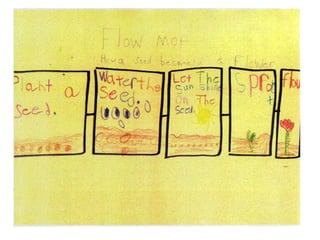 Flow Map
How a seed becomes a flower
Plant a
seed.
Water the
Seed.
Let The
sun shine
On The
Seed.
Sprot
flow